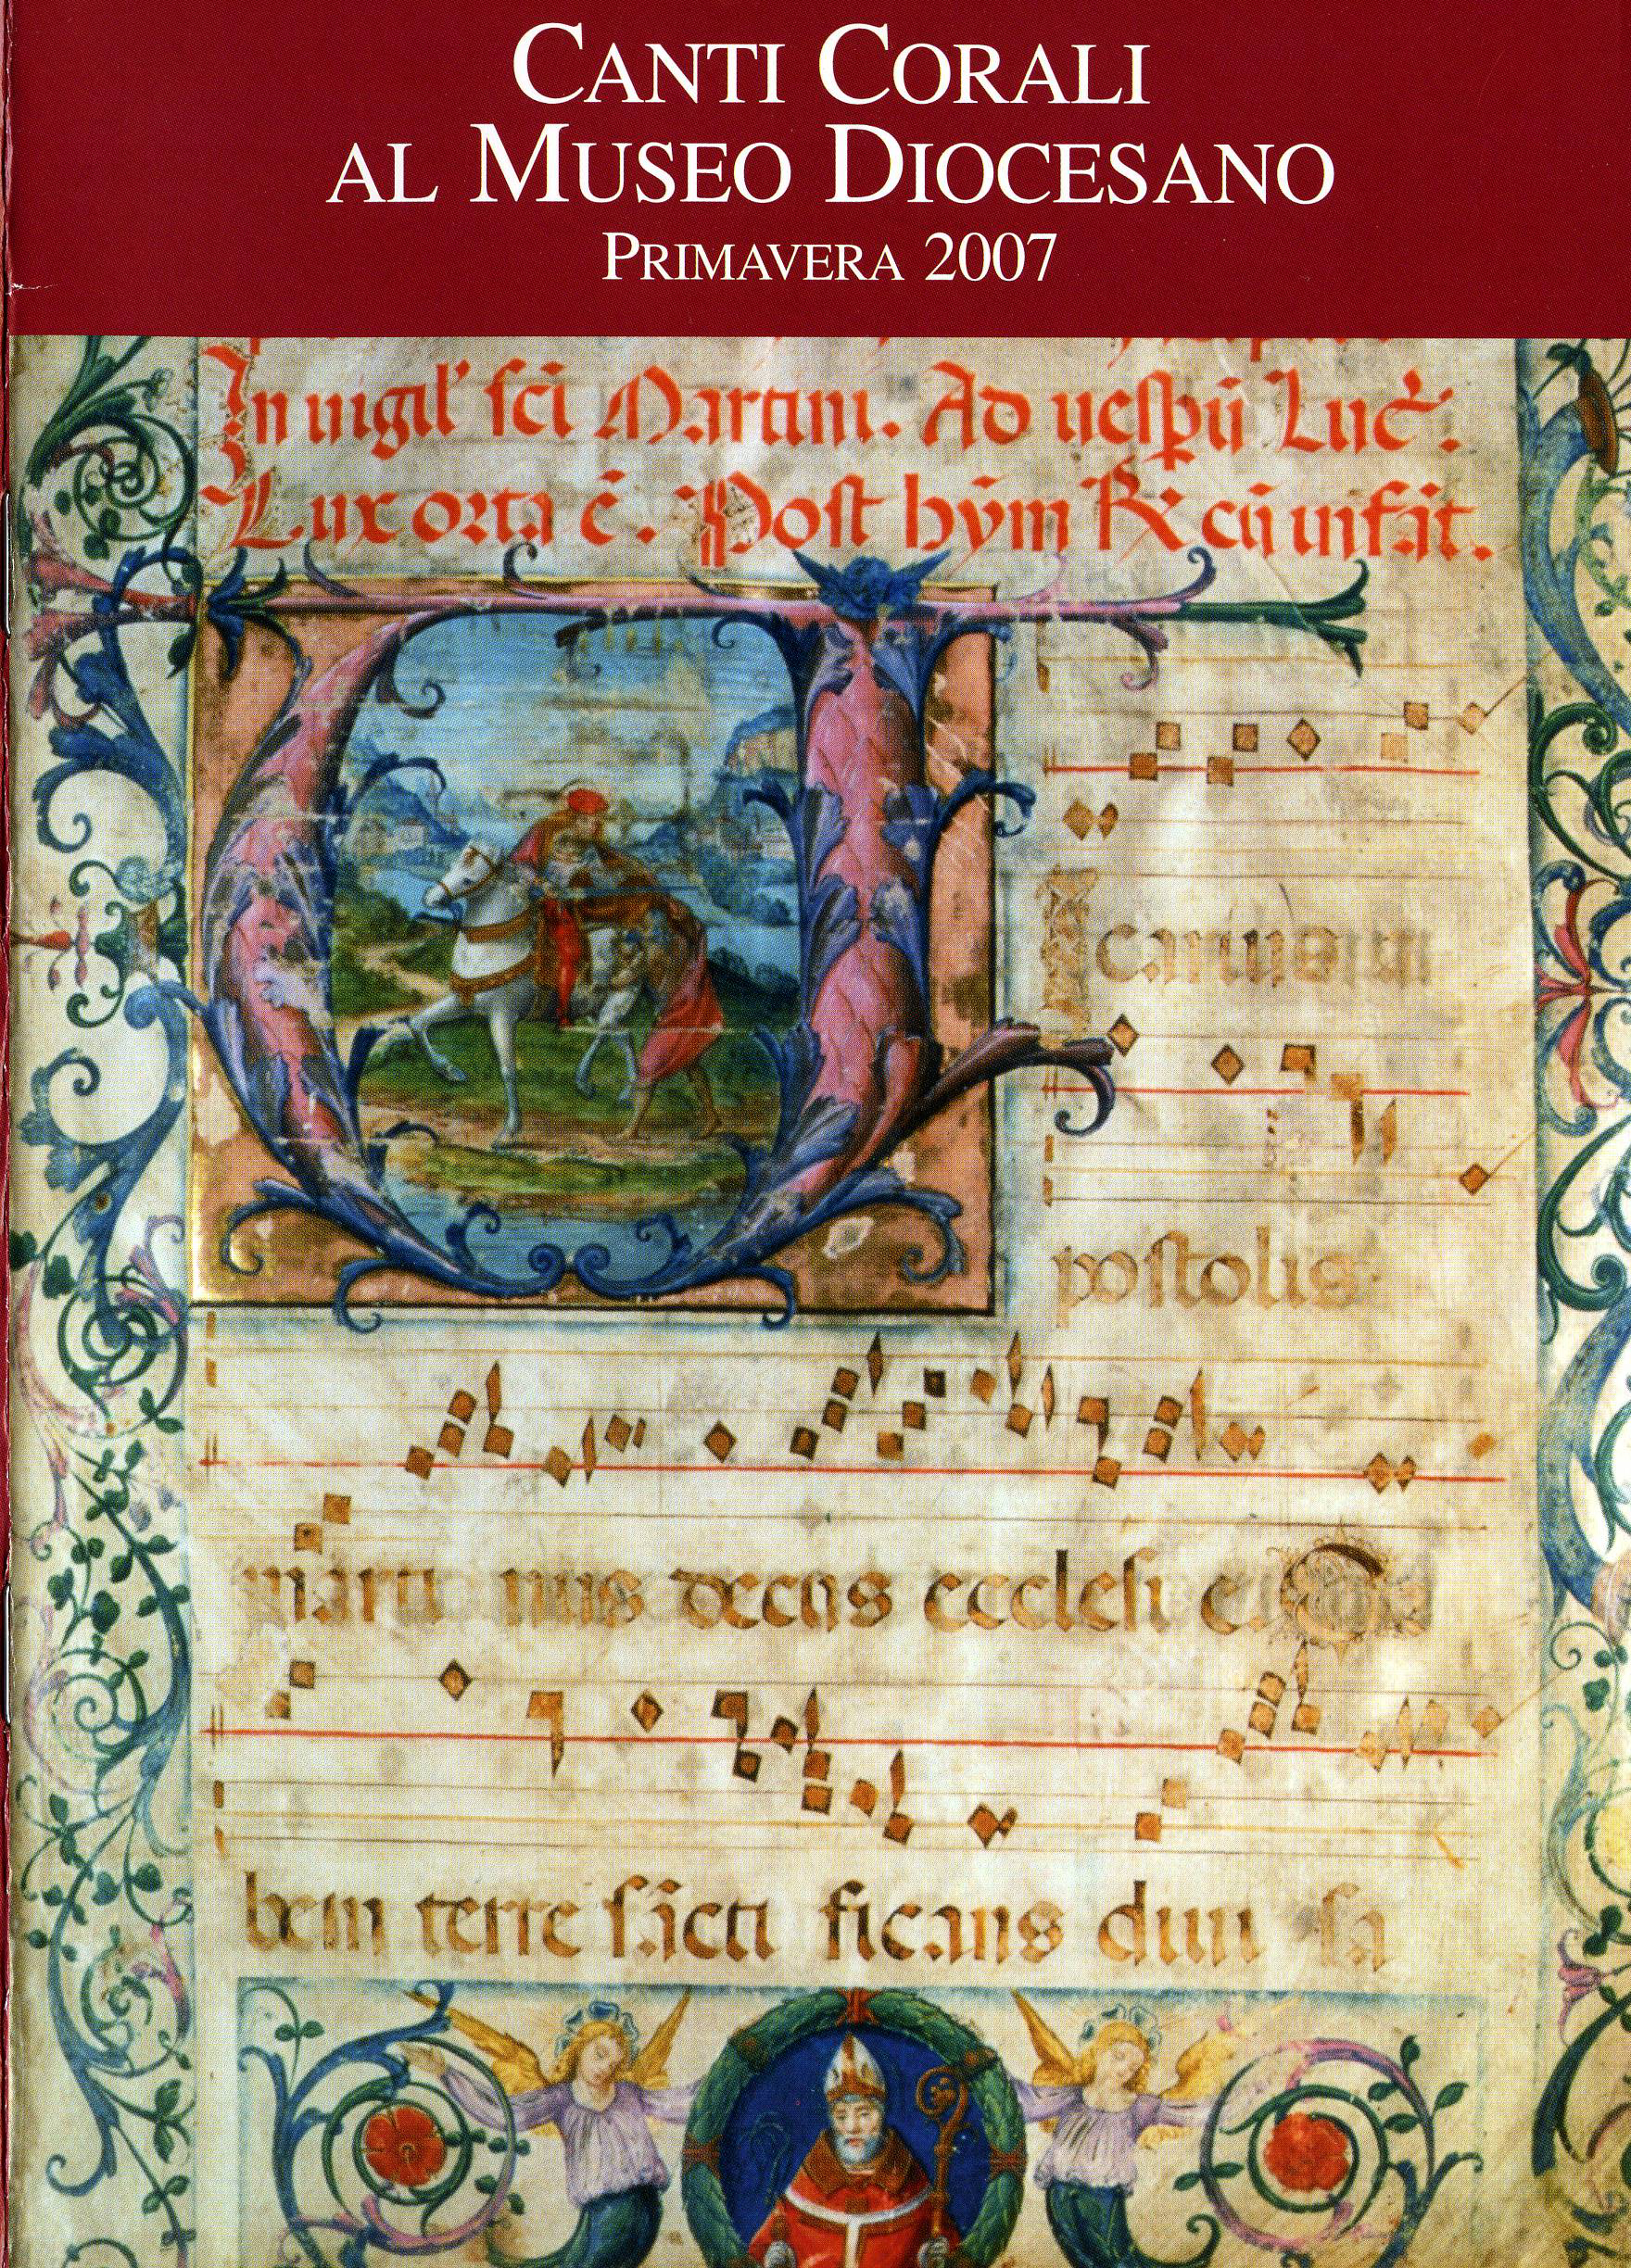 CANTI CORALI
AL MUSEO DIOCESANO
PRIMAVERA 2007
In uigil' sci Martini. Ad uespū Luc̄.
Lux orta ē. Post hȳm ℟ cū infāt.
postolis
marti nus decus ecclesi e
bem terre sācti ficans diui sa